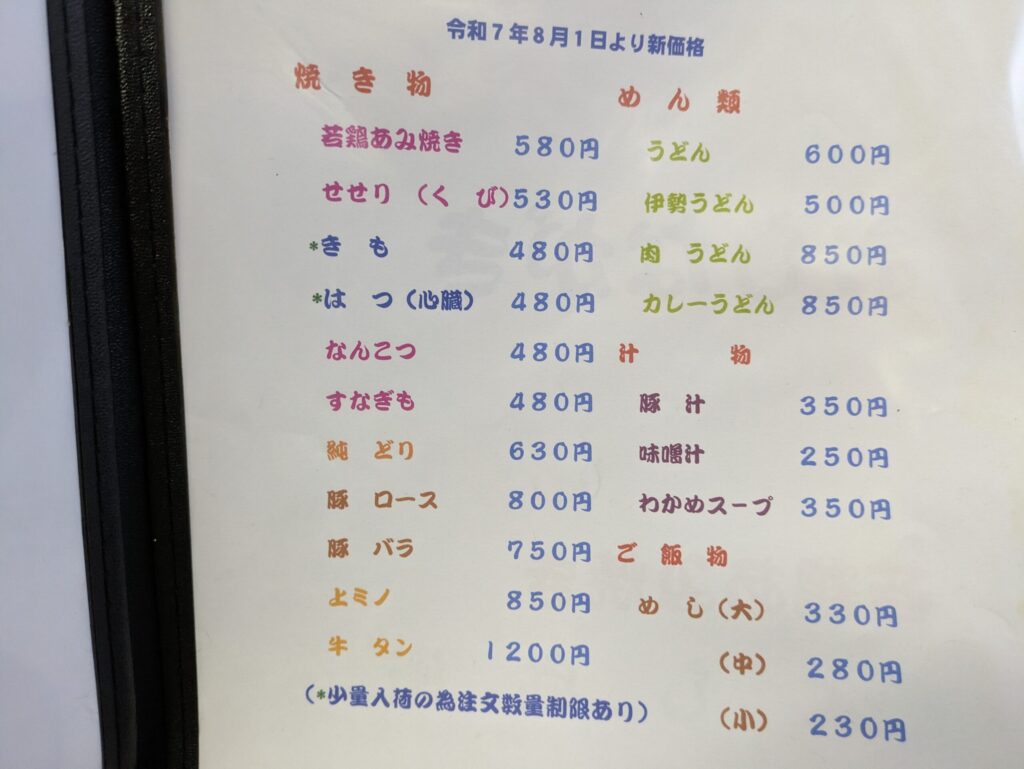 令和7年8月1日より新価格
焼き物
若鶏あみ焼き 580円
せせり (くび) 530円
*きも 480円
*はつ(心臓) 480円
なんこつ 480円
すなぎも 480円
純 どり 630円
豚 ロース 800円
豚 バラ 750円
上ミノ 850円
牛 タン 1200円
(*少量入荷の為注文数量制限あり)
めん類
うどん 600円
伊勢うどん 500円
肉 うどん 850円
カレーうどん 850円
汁物
豚 汁 350円
味噌汁 250円
わかめスープ 350円
ご飯物
めし(大) 330円
(中) 280円
(小) 230円